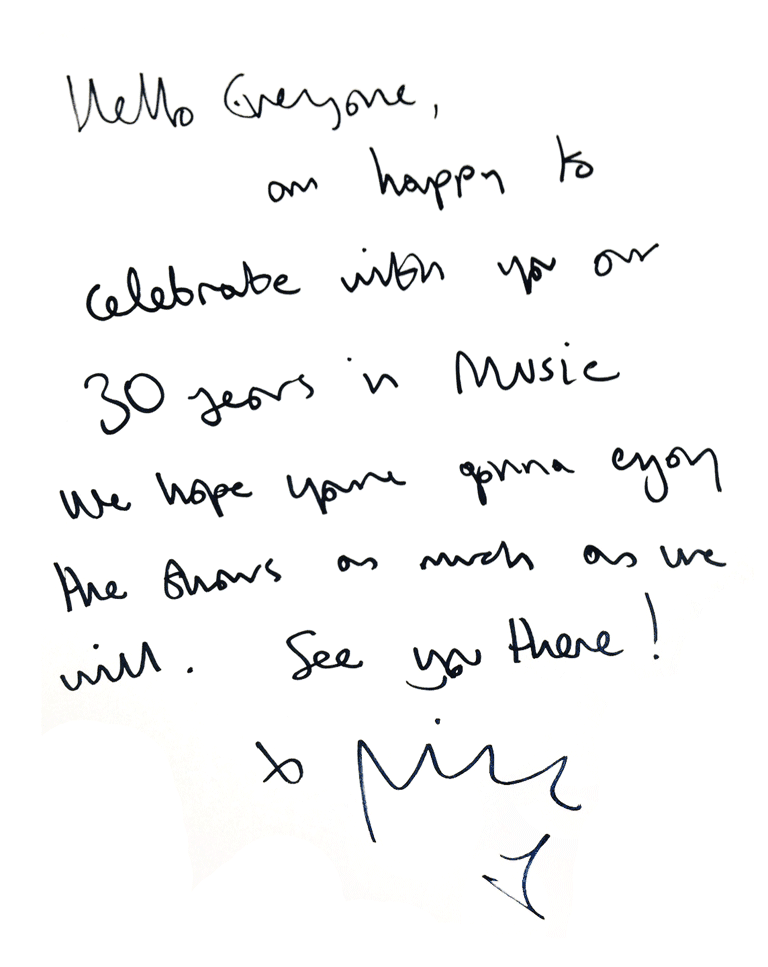 Hello Everyone,
am happy to
celebrate with you our
30 years in Music
We hope you're gonna enjoy
the shows as much as we
will. See you there!